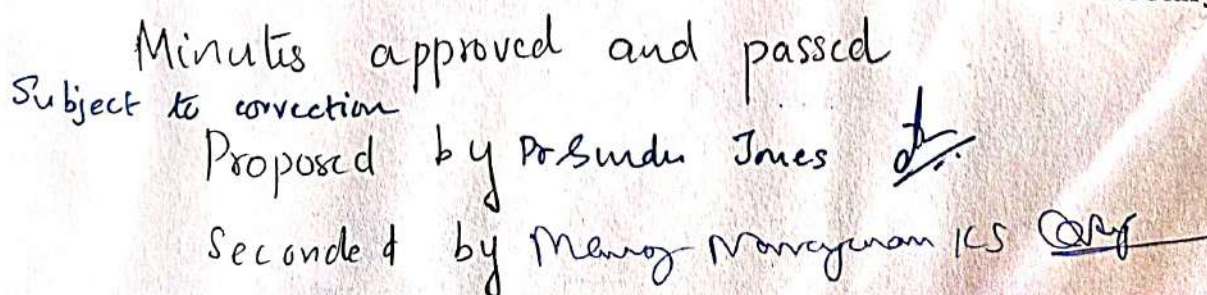 Minutes approved and passed
Subject to correction
Proposed by Dr Sundu Jones
Seconded by Manoj Narayanan KS